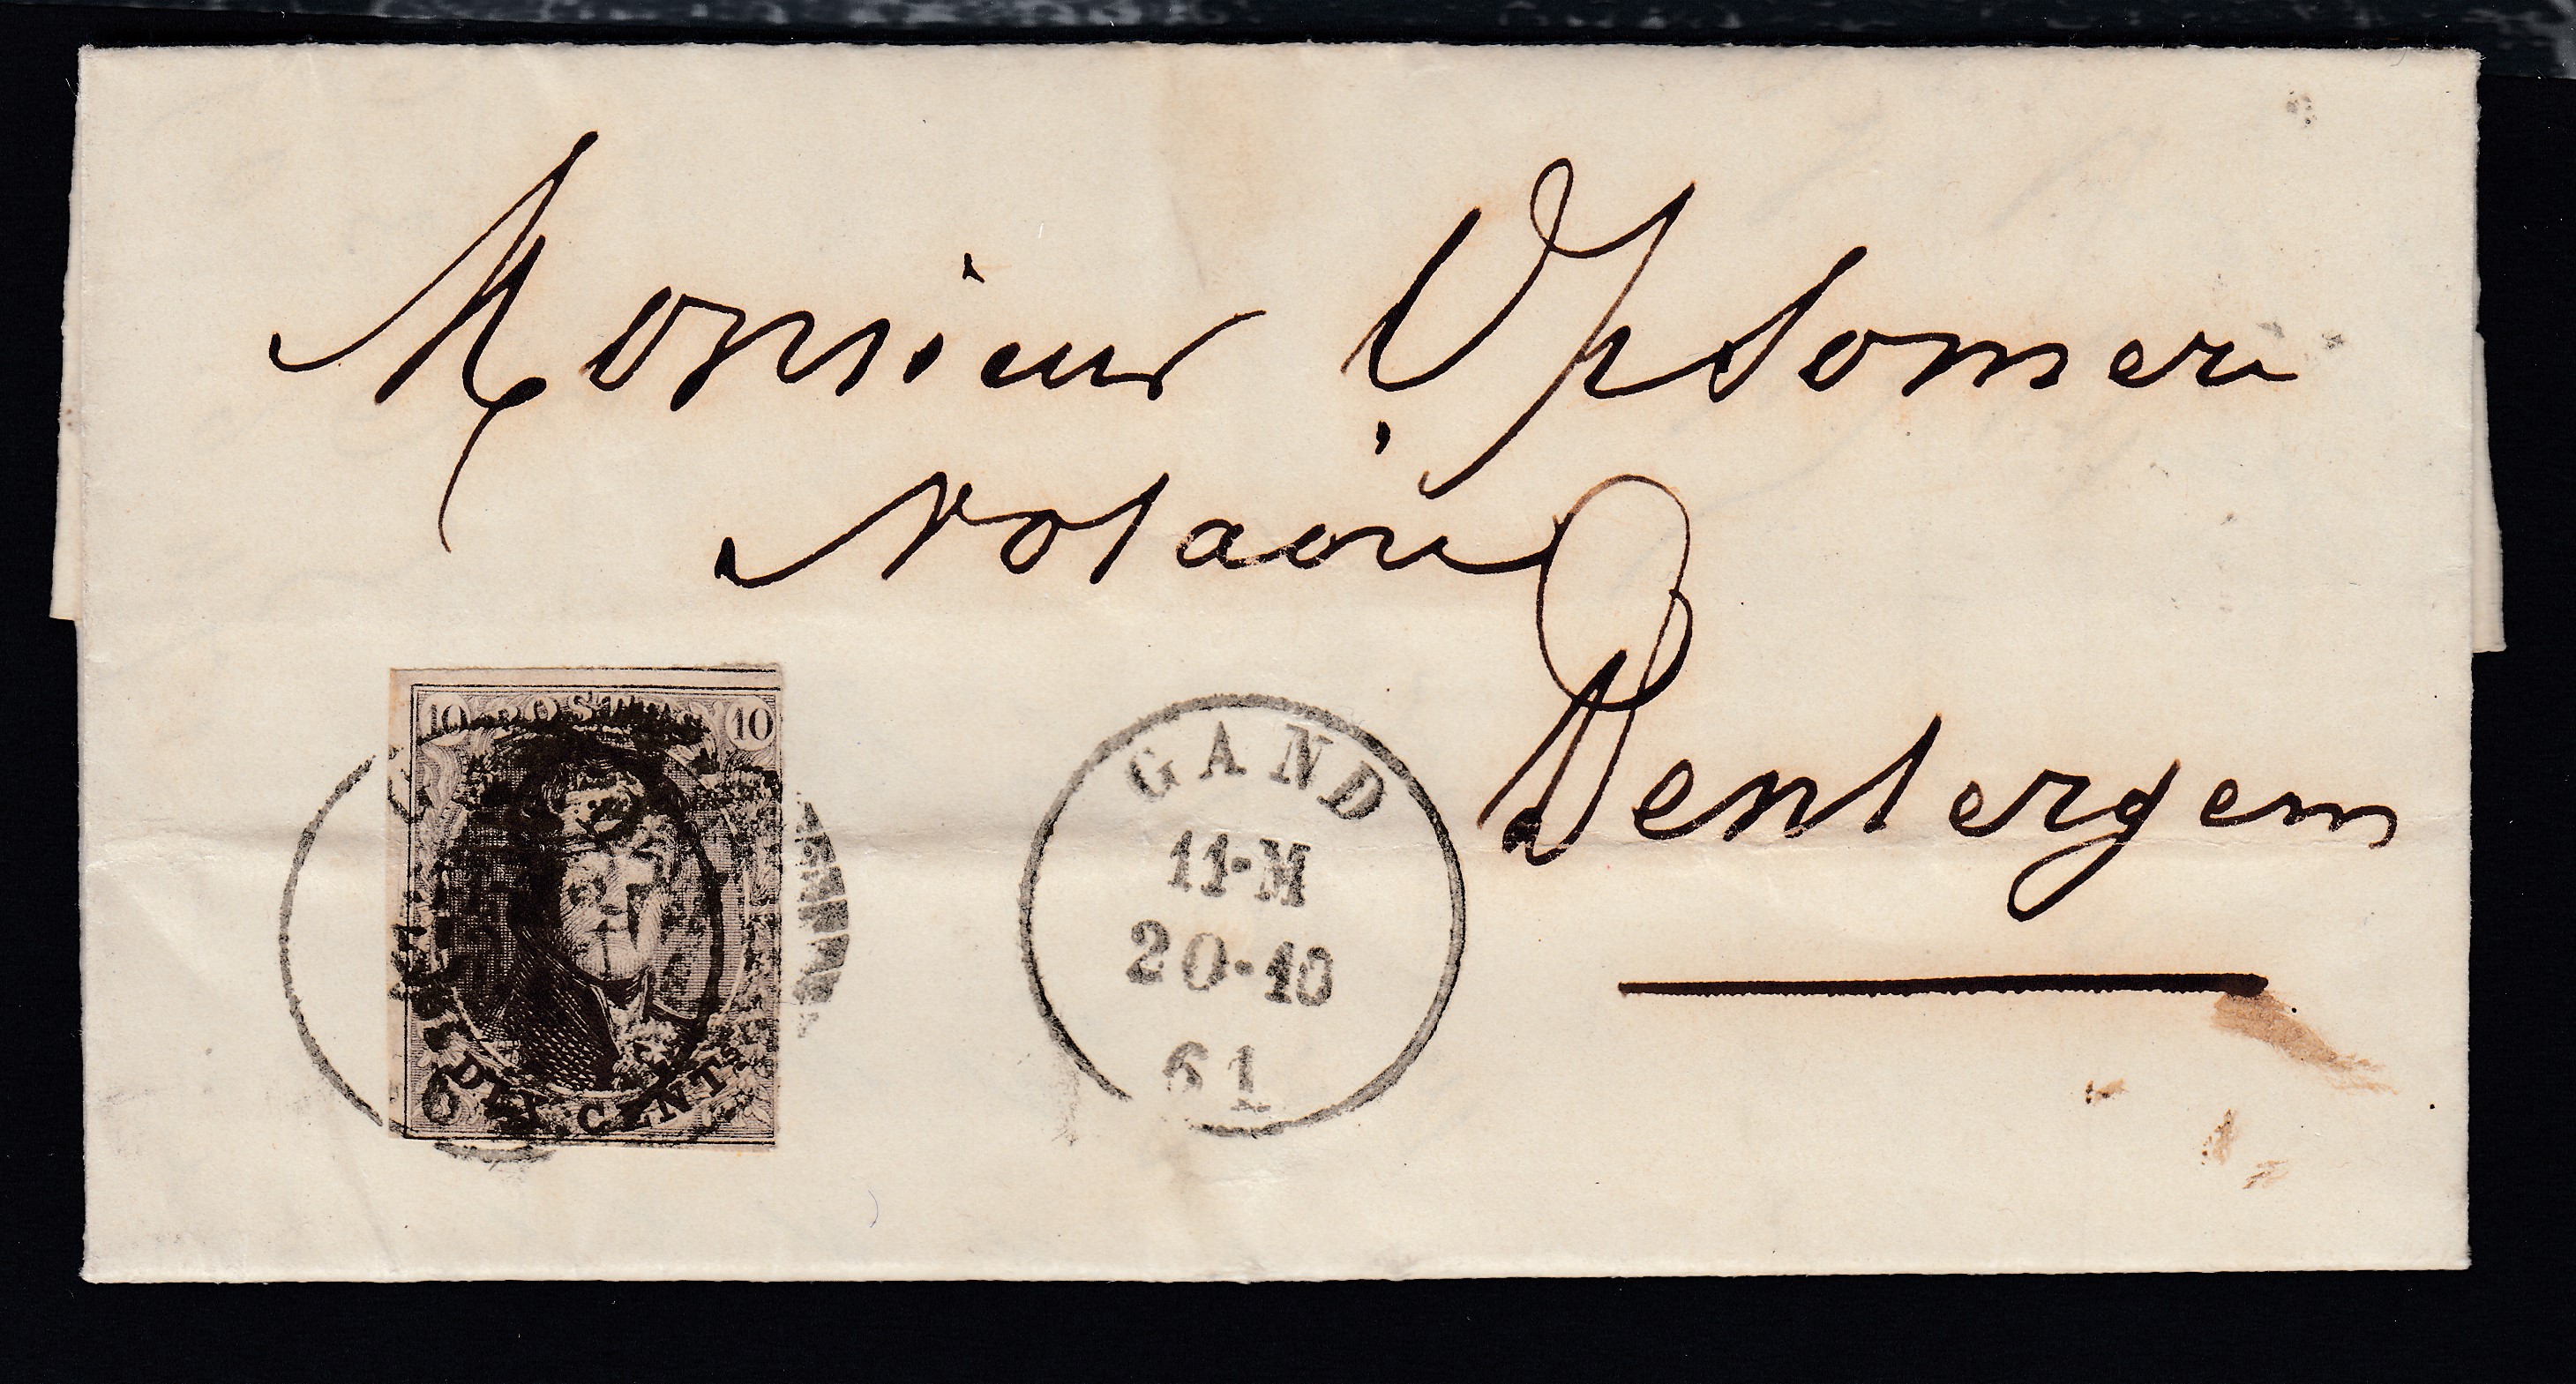 Monsieur Opsomer
Notaire
Dentergem
10 POSTES 10
DIX CENTS
GAND
11-M
20-10
61